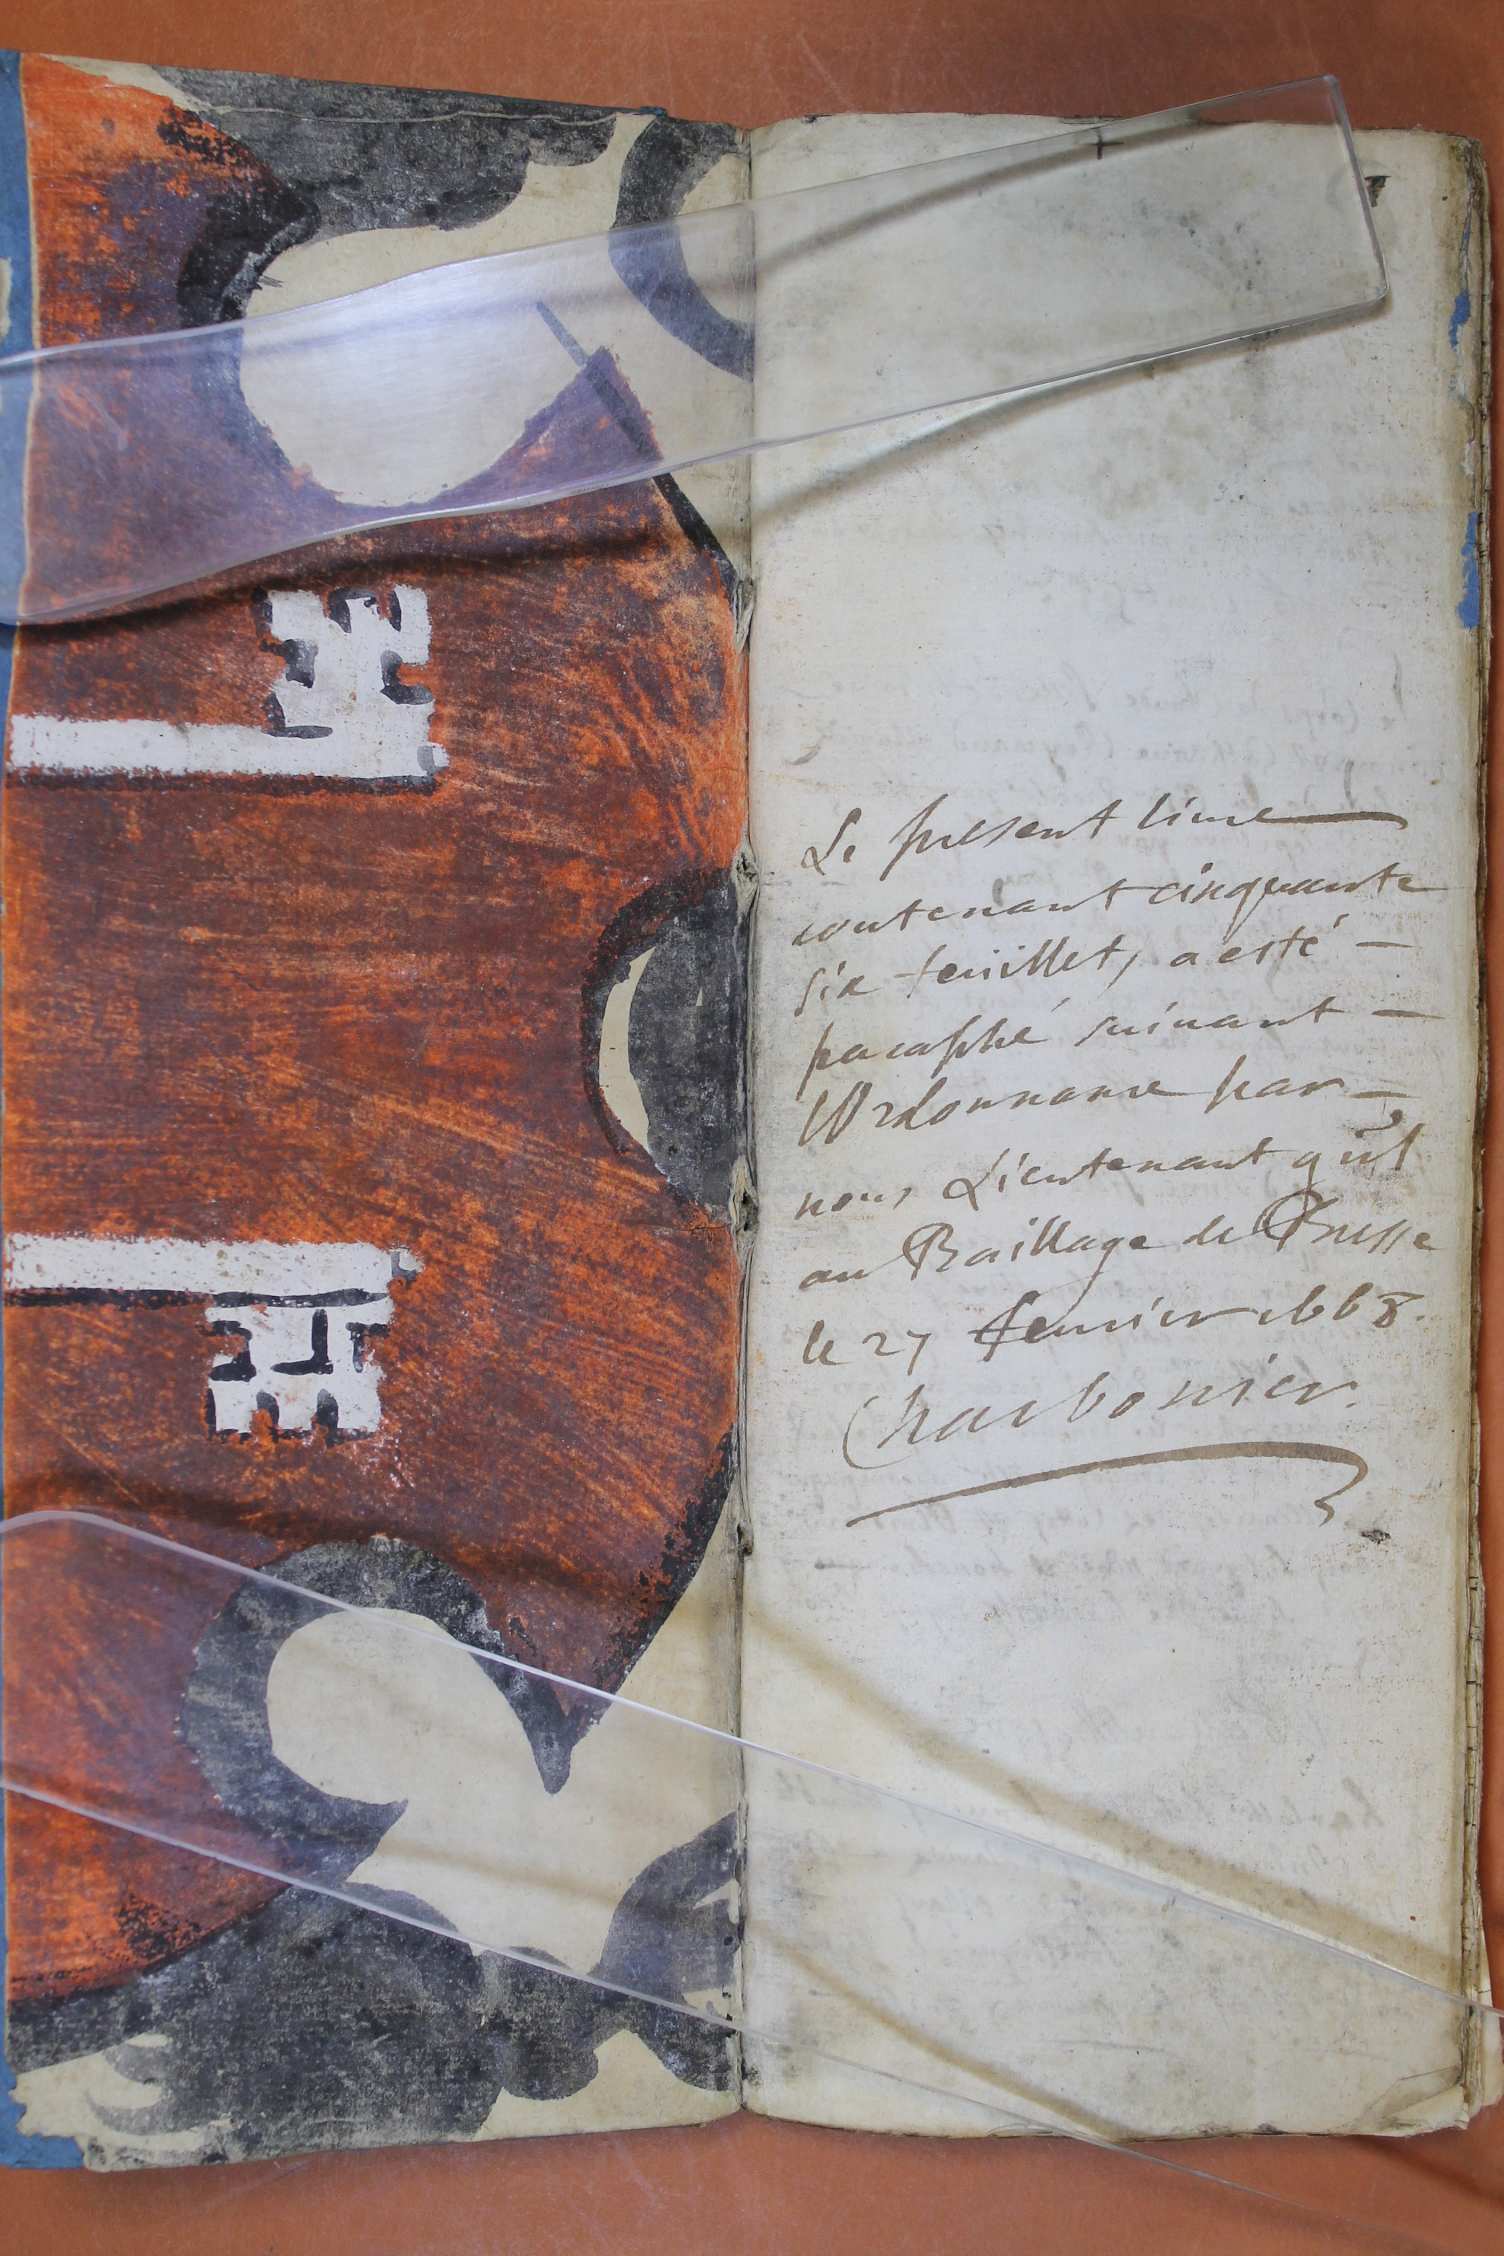 Le present livre
contenant cinquante
six feüillets, a esté
paraphé suivant
l'Ordonnance par
nous Lieutenant gñal
au Baillage de Bresse
le 27 feurier 1668.
Charbonier.